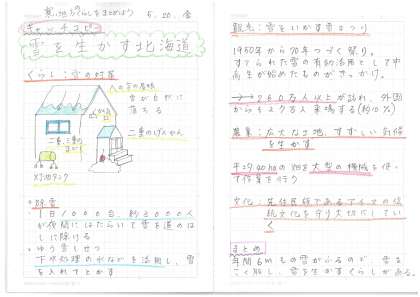 寒い地方のくらしをまとめよう
5.20.金
キャッチコピー
雪を生かす北海道
くらし:家の対策
への字の屋根
雪が自然に落ちる
二重のげんかん
二重、三重のまど
灯油タンク
除雪
1日1000台、約2000人
が夜間にはたらいて雪を道のは
しに除ける
ゆう雪しせつ
下水処理の水などを活用し、雪
を入れてとかす
観光:雪をいかす雪まつり
1950年から70年つづく祭り。
すてられた雪の有効活用として中
高生が始めたものがきっかけ。
→260万人以上が訪れ、外国
からもたくさん来場する(約10%)
農業:広大な土地、すずしい気候
を生かす
平均40haの畑を大型の機械を使っ
て作業を行う
文化:先住民族であるアイヌの伝
統文化を守り大切にしてい
く
まとめ
年間6mもの雪がふるので、雪を
こく服し、雪を生かすくらしがある。